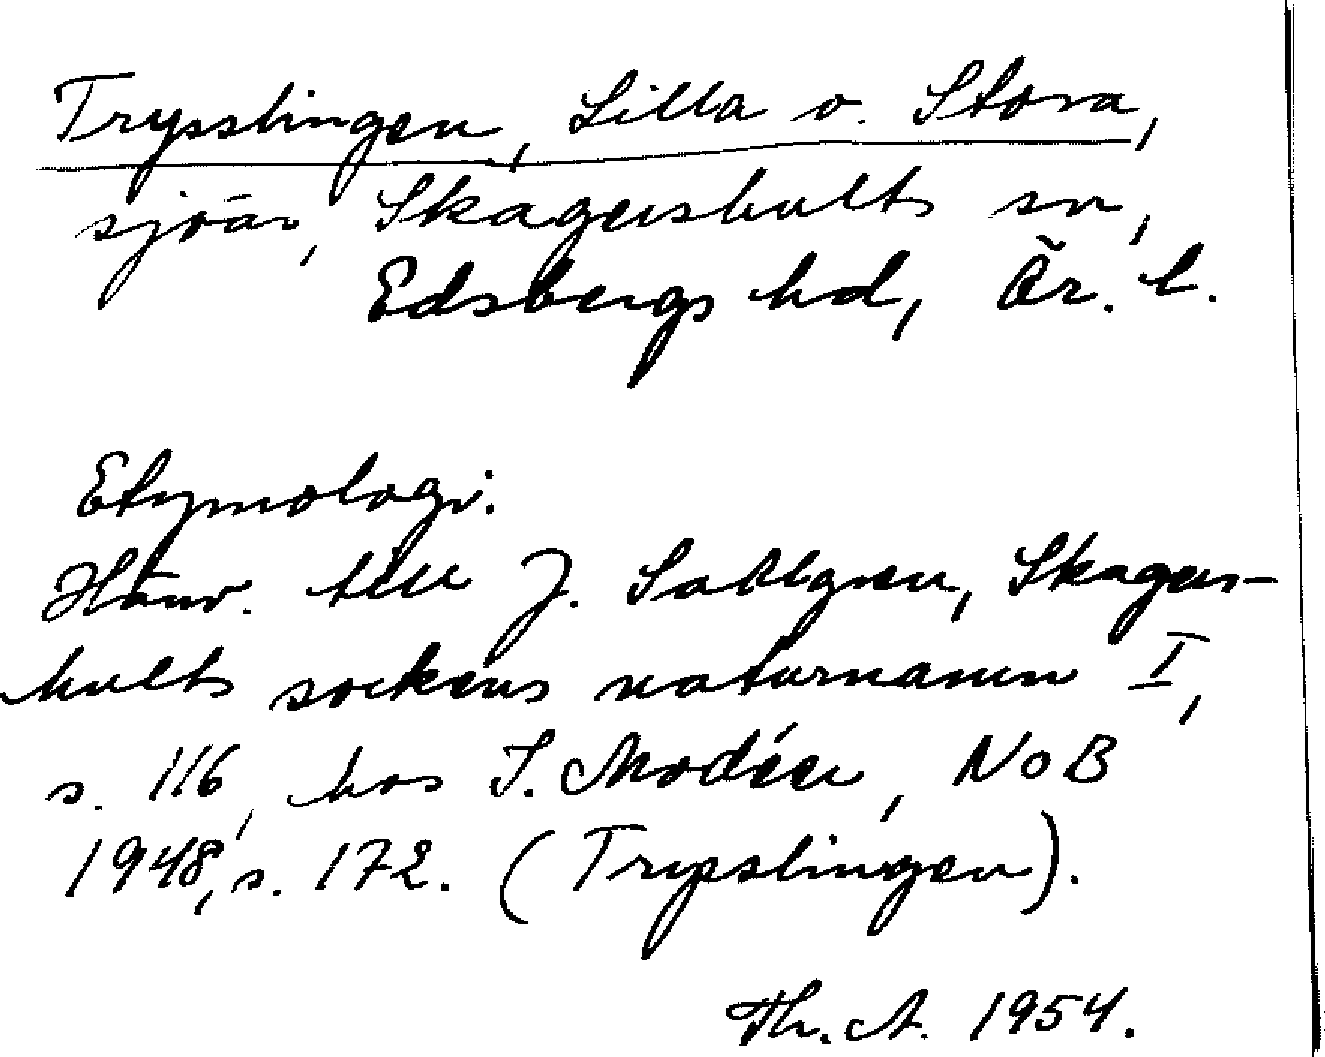 Trysslingen, Lilla o. Stora,
sjöar, Skagershults sn,
Edsbergs hd, Ör. l.
Etymologi:
Hänv. till J. Sahlgren, Skagers-
hults sockens naturnamn I,
s. 116, hos I. Modéer, NoB
1948, s. 172. (Trysslingen).
Th. A. 1954.